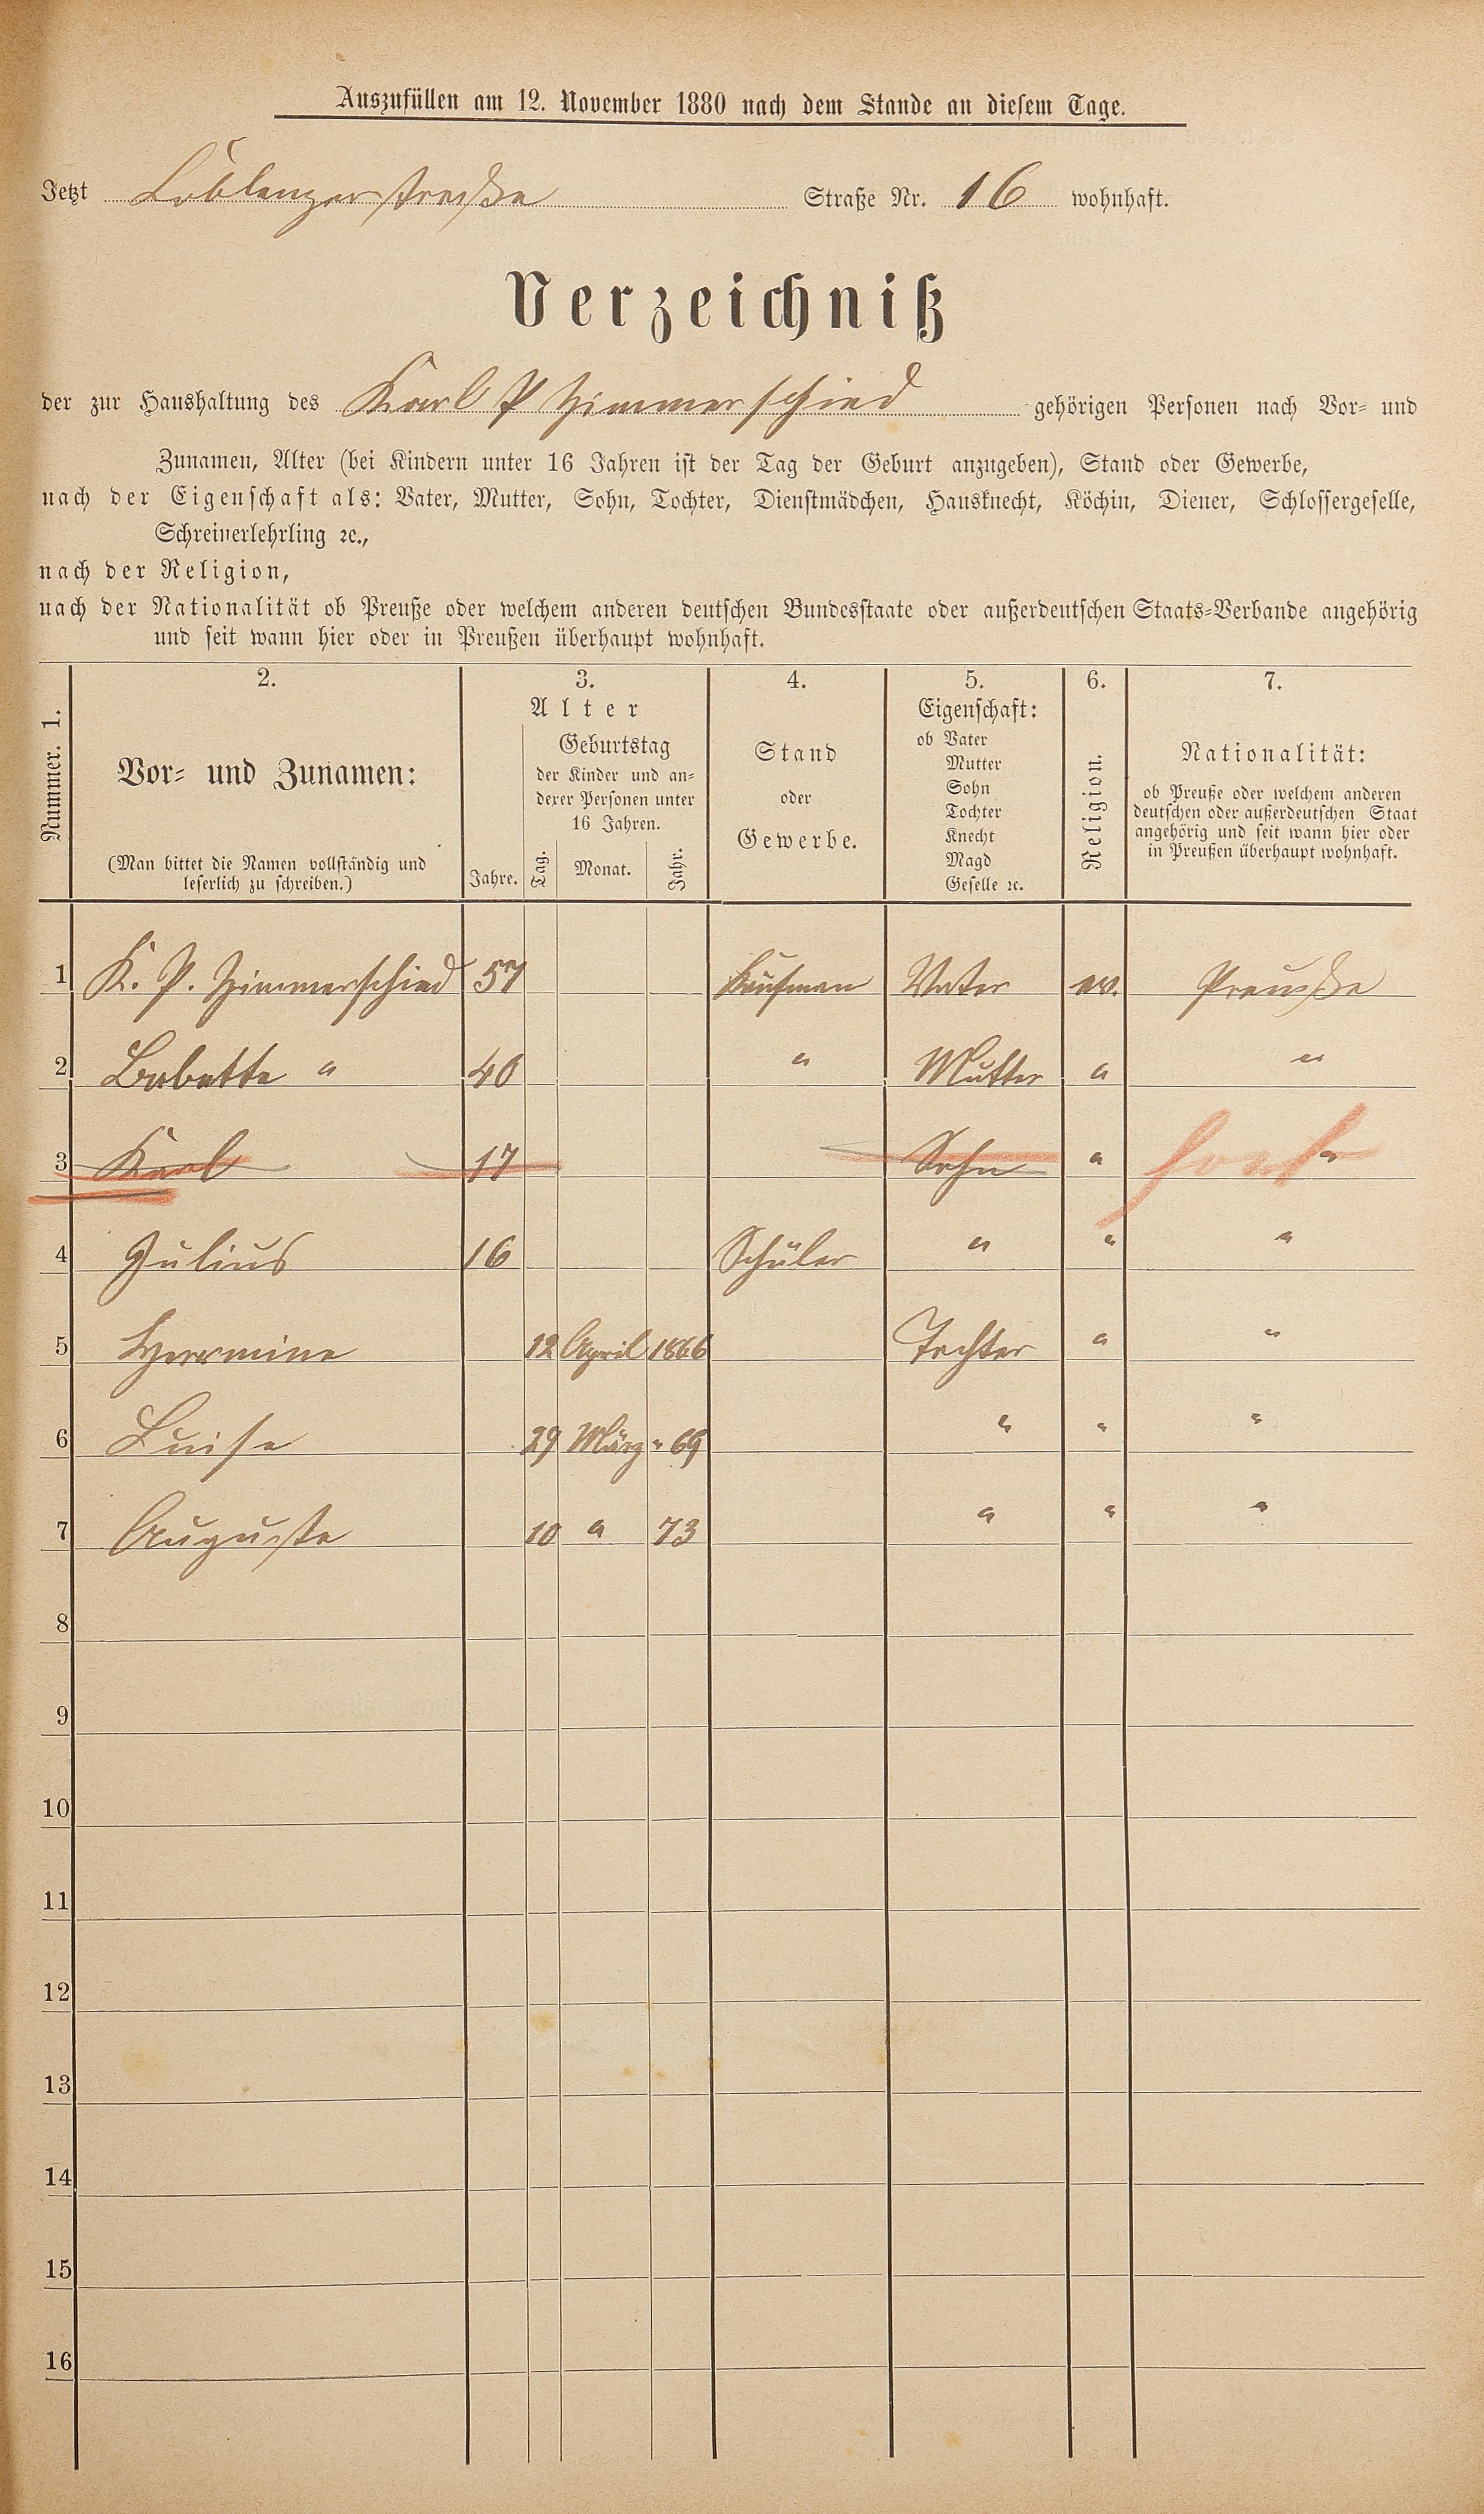 Auszufüllen am 12. November 1880 nach dem Stande an diesem Tage.
Jetzt Coblenzerstraße Straße Nr. 16 wohnhaft.
Verzeichniß
der zur Haushaltung des Karl P Zimmerschied gehörigen Personen nach Vor- und
Zunamen, Alter (bei Kindern unter 16 Jahren ist der Tag der Geburt anzugeben), Stand oder Gewerbe,
nach der Eigenschaft als: Vater, Mutter, Sohn, Tochter, Dienstmädchen, Hausknecht, Köchin, Diener, Schlossergeselle,
Schreinerlehrling ꝛc.,
nach der Religion,
nach der Nationalität ob Preuße oder welchem anderen deutschen Bundesstaate oder außerdeutschen Staats-Verbande angehörig
und seit wann hier oder in Preußen überhaupt wohnhaft.
Nummer. 1.
2.
Vor- und Zunamen:
(Man bittet die Namen vollständig und
leserlich zu schreiben.)
3.
Alter
Jahre.
Geburtstag
der Kinder und an-
derer Personen unter
16 Jahren.
Tag. Monat. Jahr.
4.
Stand
oder
Gewerbe.
5.
Eigenschaft:
ob Vater
Mutter
Sohn
Tochter
Knecht
Magd
Geselle ꝛc.
6.
Religion.
7.
Nationalität:
ob Preuße oder welchem anderen
deutschen oder außerdeutschen Staat
angehörig und seit wann hier oder
in Preußen überhaupt wohnhaft.
1 K. P. Zimmerschied 57 Kaufman Vater ev. Preuße
2 Babette " 40 " Mutter " "
3 Karl 17 Sohn " fort "
4 Julius 16 Schüler " " "
5 Herrmine 12 April 1866 Tochter " "
6 Luise 29 März " 69 " " "
7 Auguste 10 " 73 " " "
8
9
10
11
12
13
14
15
16